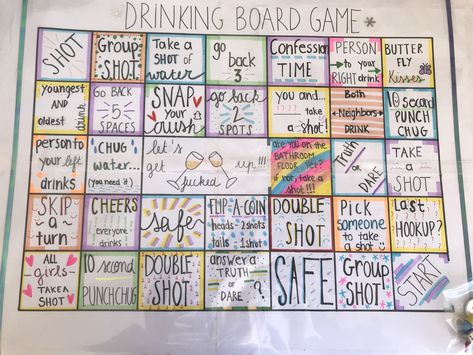 DRINKING BOARD GAME
SHOT
Group
SHOT
Take a
SHOT of
water
go back
3
Confession
TIME
PERSON
to your
RIGHT drink
BUTTER
FLY
Kisses
YOUNGEST
AND
oldest
drink
GO BACK
5
SPACES
SNAP
your
crush
go back
2
SPOTS
you and...
take
a shot!
Both
Neighbors
DRINK
10 second
PUNCH
CHUG
person to
your left
drinks
CHUG
water...
(you need it)
let's
get
fucked
up!!!
are you on the
BATHROOM
FLOOR yet?
if not, take a
SHOT!!!
Truth
or
DARE
TAKE
a
SHOT
SKIP
a
turn
CHEERS
everyone
drinks!
safe
FLIP A COIN
heads-2shots
tails-1shot
DOUBLE
SHOT
Pick
someone
to take
a shot
Last
HOOKUP?
ALL
girls
TAKE A SHOT
10 second
PUNCHCHUG
DOUBLE
SHOT
answer a
TRUTH
or
DARE?
SAFE
Group
SHOT
START